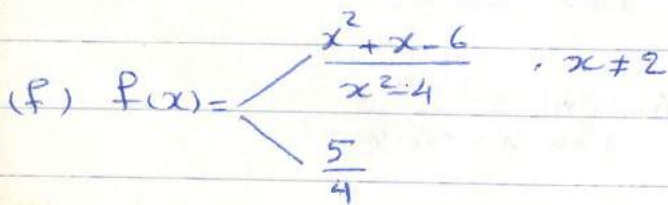 (f) f(x) = x² + x - 6 / x² - 4 , x ≠ 2
5/4